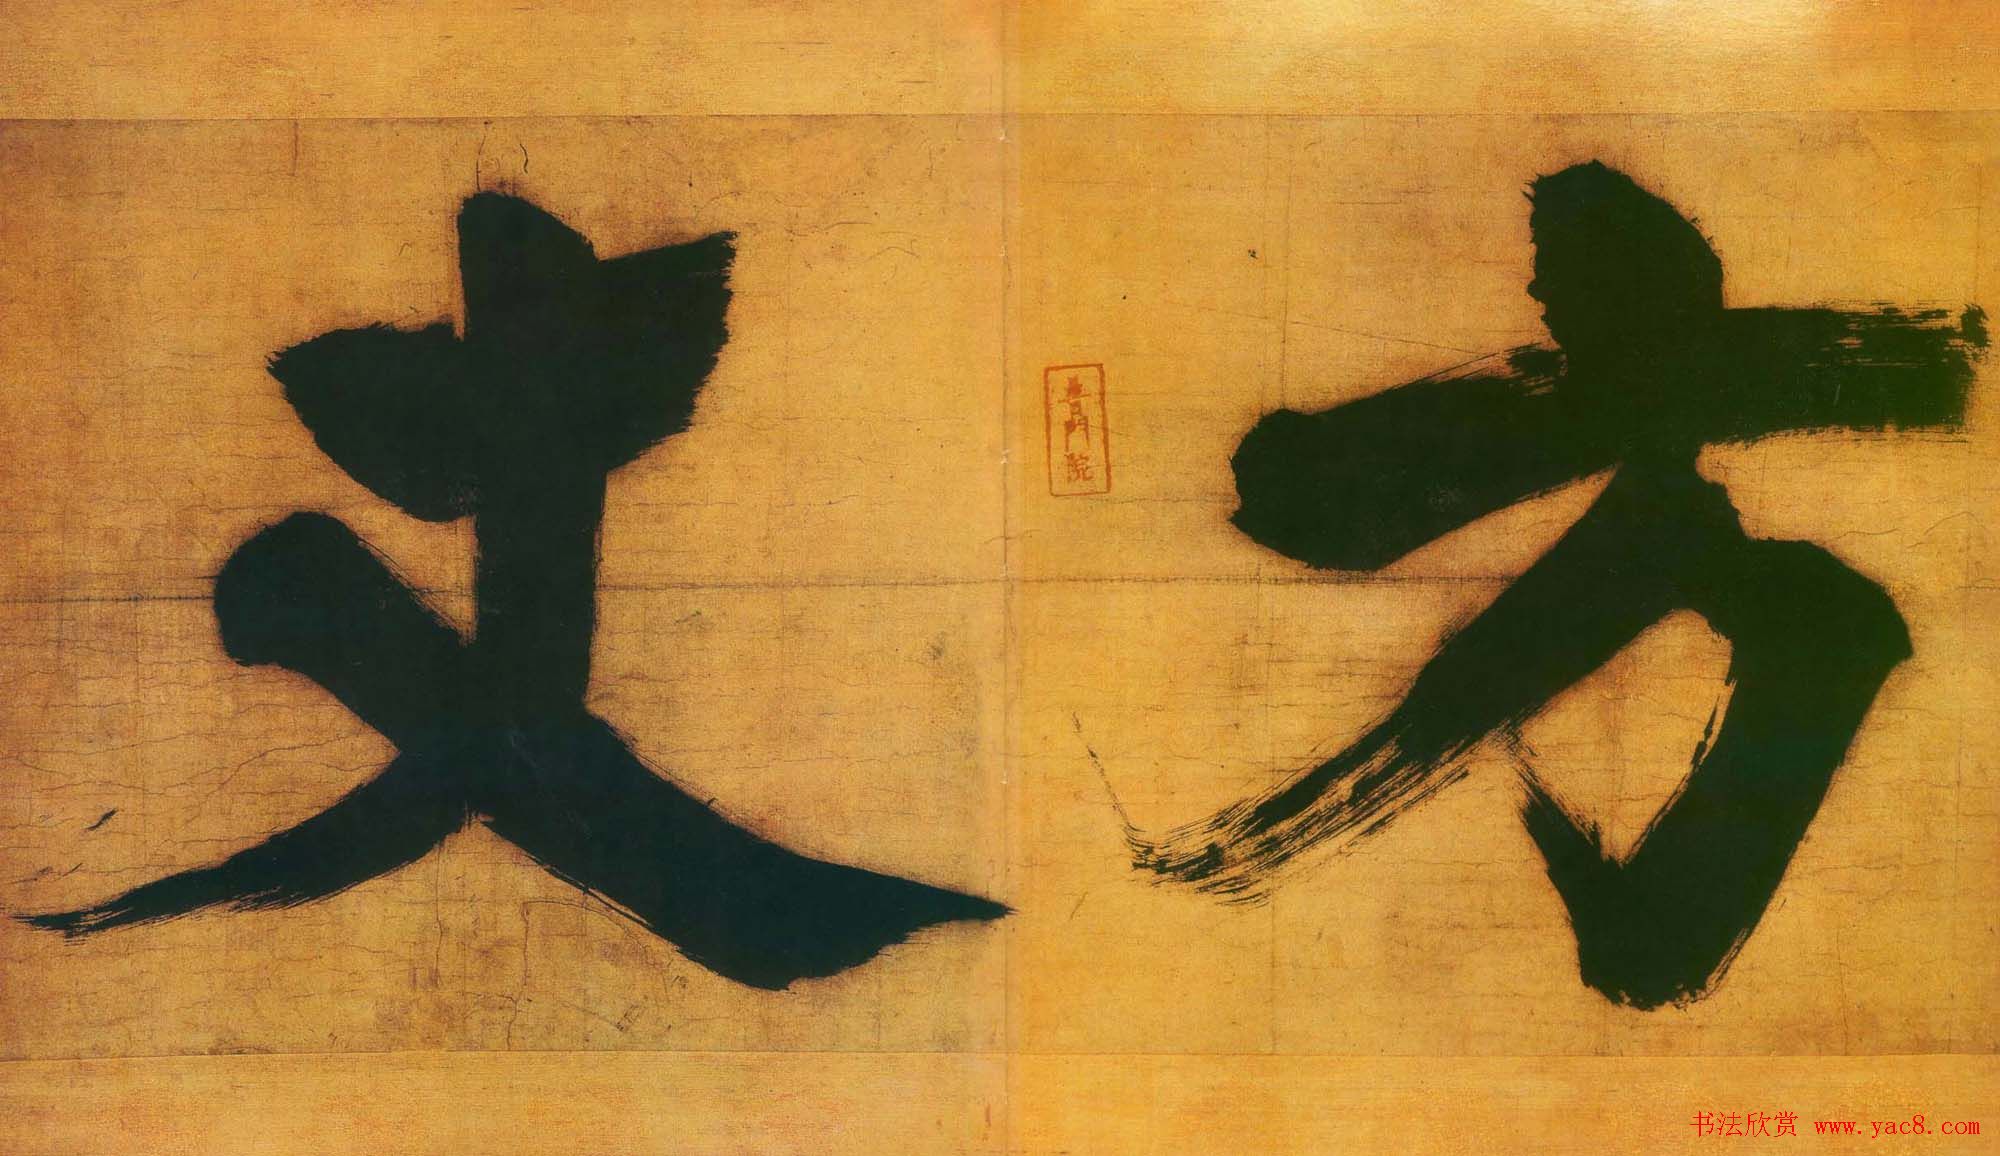 方丈
普門院
书法欣赏 www.yac8.com